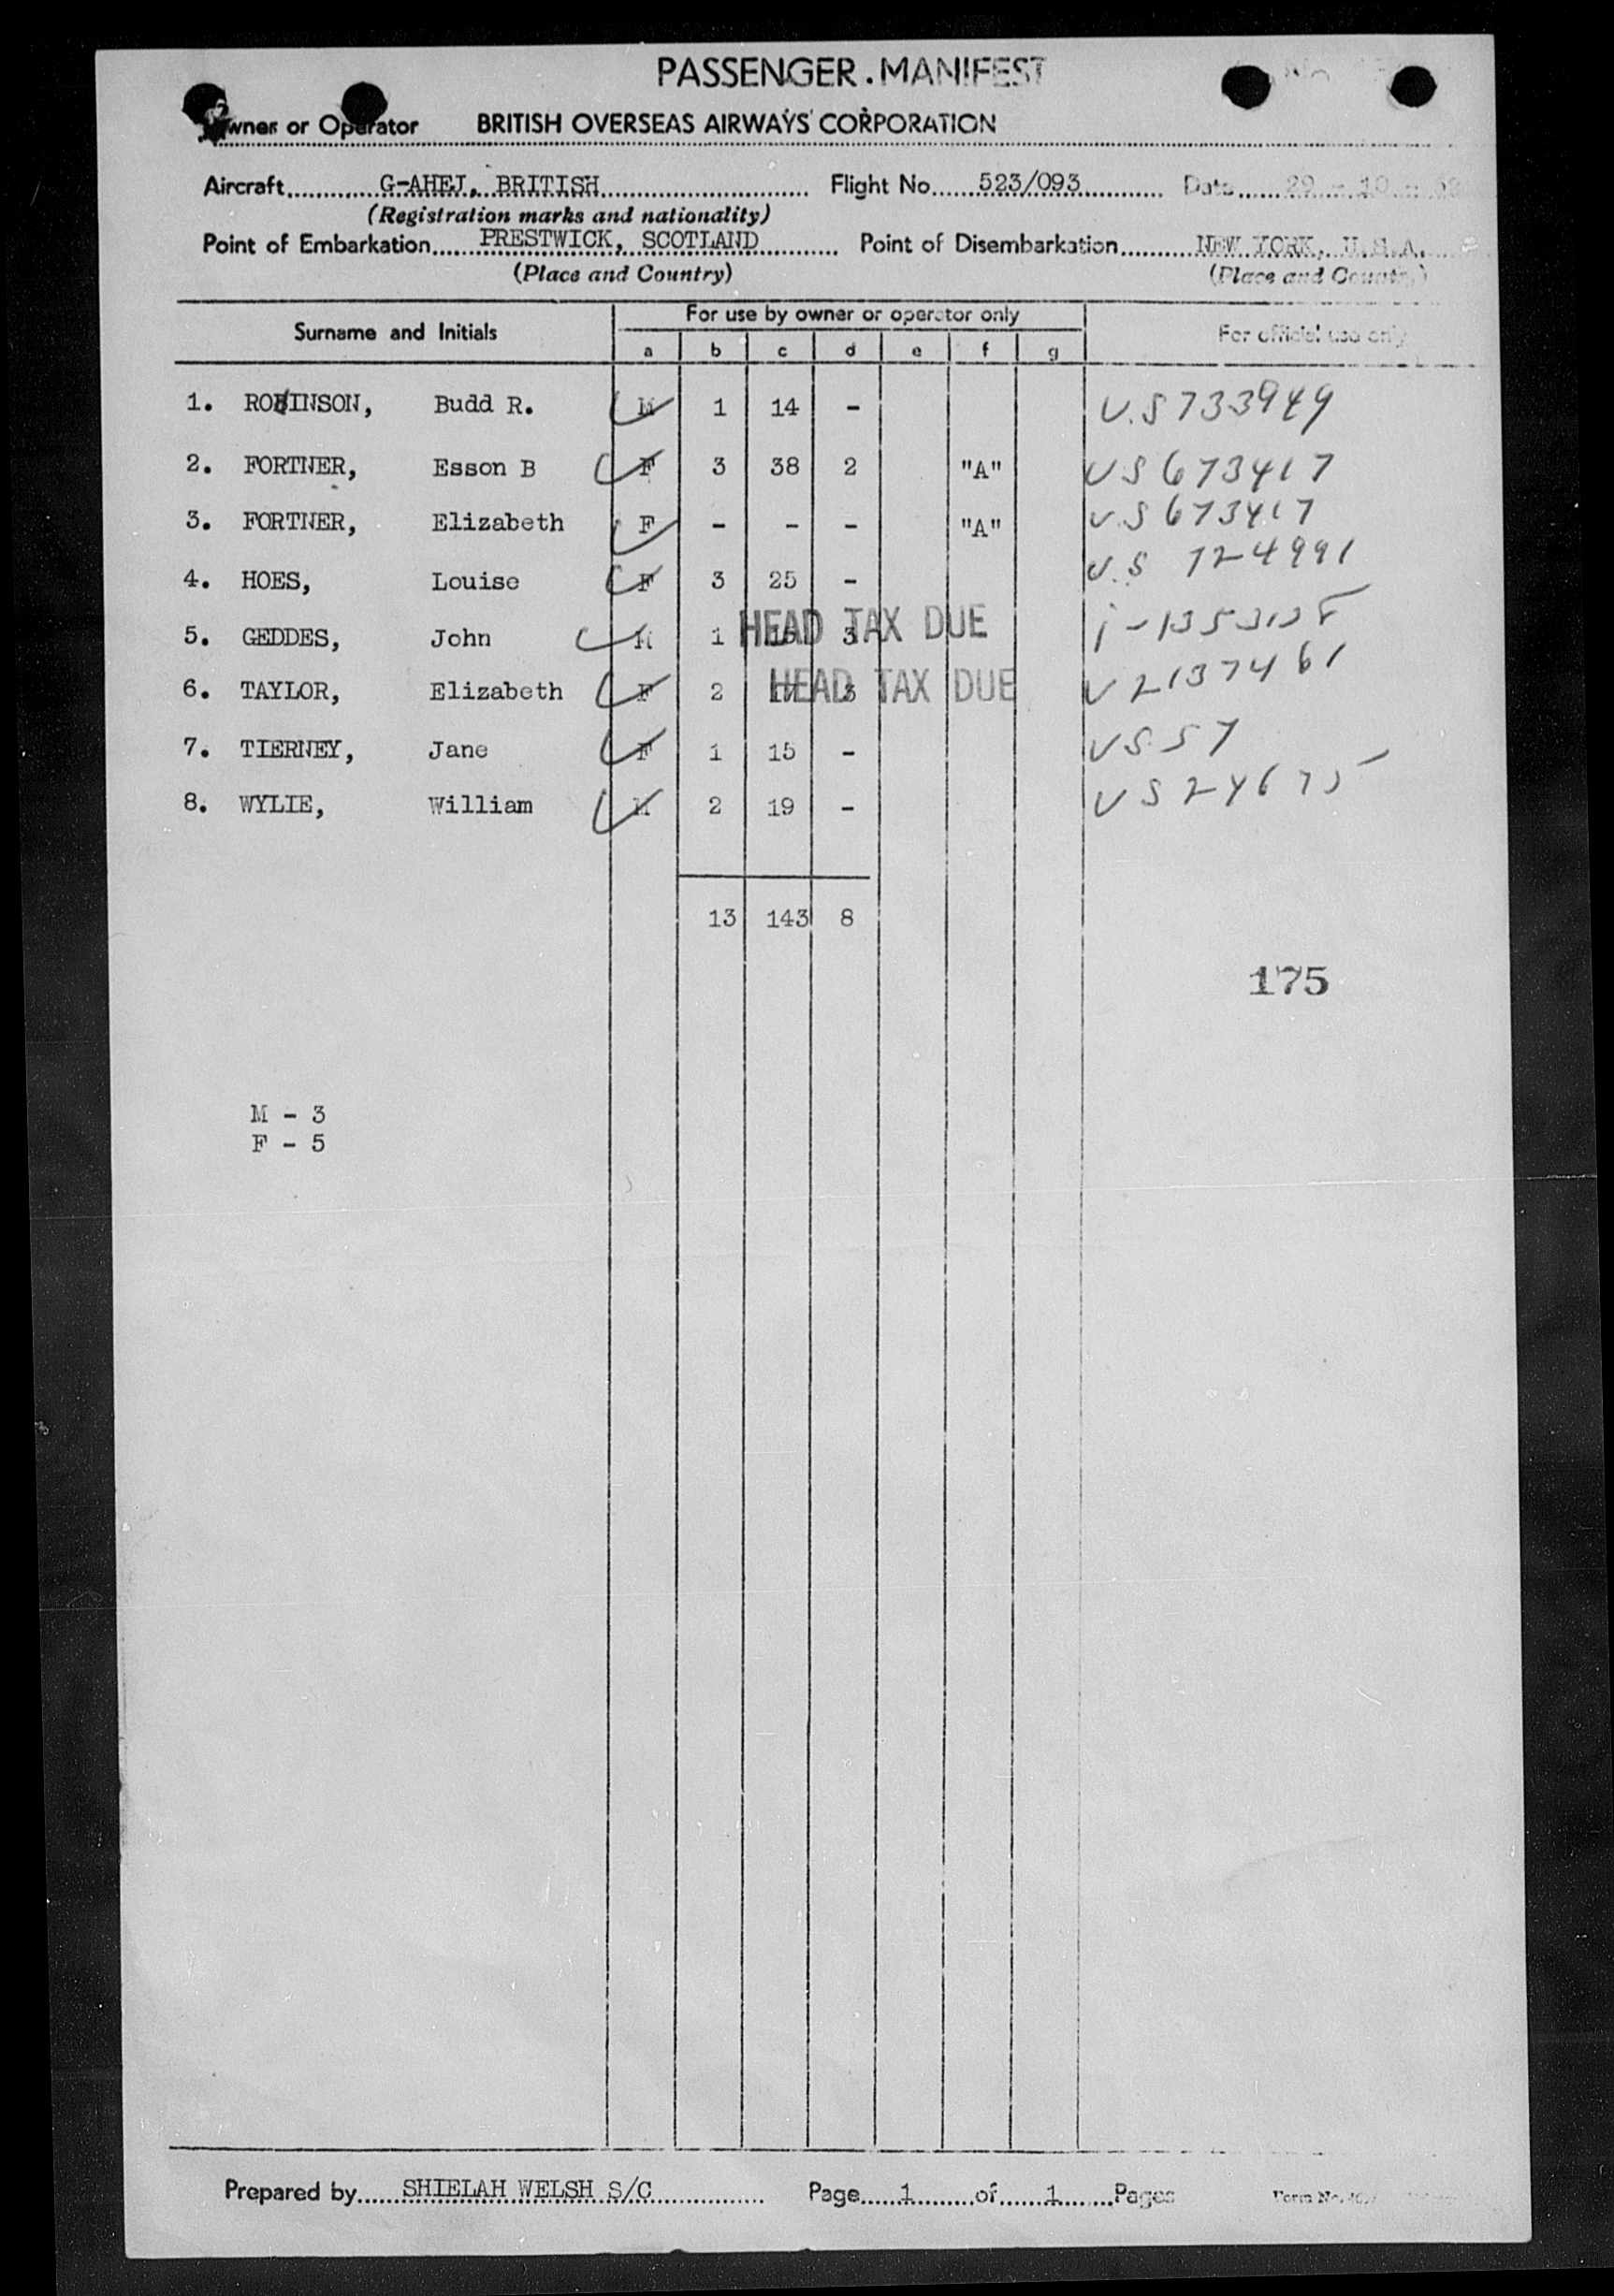 PASSENGER. MANIFEST
Owner or Operator BRITISH OVERSEAS AIRWAYS CORPORATION
Aircraft G-AHEJ, BRITISH Flight No. 523/093 Date 29 - 10 -
(Registration marks and nationality)
Point of Embarkation PRESTWICK, SCOTLAND Point of Disembarkation NEW YORK, U.S.A.
(Place and Country) (Place and Country)
Surname and Initials For use by owner or operator only For official use only
a b c d e f g
1. ROBINSON, Budd R. M 1 14 - U.S 733949
2. FORTNER, Esson B F 3 38 2 "A" US 673417
3. FORTNER, Elizabeth F - - - "A" U.S 673417
4. HOES, Louise F 3 25 - U.S 724991
5. GEDDES, John M 1 3 HEAD TAX DUE
6. TAYLOR, Elizabeth F 2 3 HEAD TAX DUE
7. TIERNEY, Jane F 1 15 - US 57
8. WYLIE, William M 2 19 - US 24675
13 143 8
175
M - 3
F - 5
Prepared by SHIELAH WELSH S/C Page 1 of 1 Pages Form No.